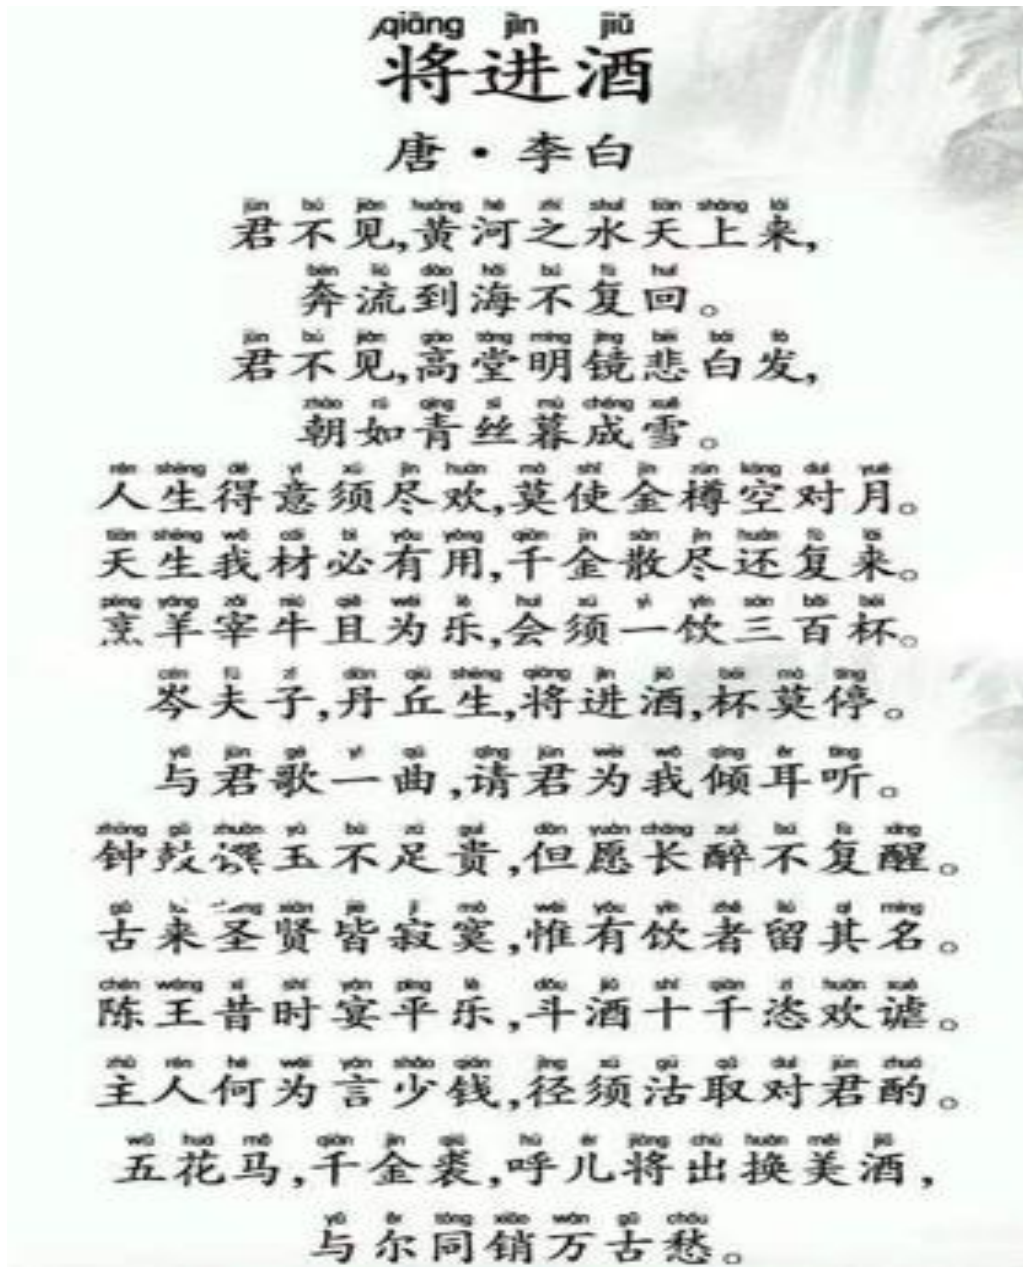 qiāng jìn jiǔ
将进酒
唐·李白
jūn bú jiàn huáng hé zhī shuǐ tiān shàng lái
君不见,黄河之水天上来,
bēn liú dào hǎi bú fù huí
奔流到海不复回。
jūn bú jiàn gāo táng míng jìng bēi bái fà
君不见,高堂明镜悲白发,
zhāo rú qīng sī mù chéng xuě
朝如青丝暮成雪。
rén shēng dé yì xū jìn huān mò shǐ jīn zūn kōng duì yuè
人生得意须尽欢,莫使金樽空对月。
tiān shēng wǒ cái bì yǒu yòng qiān jīn sàn jìn huán fù lái
天生我材必有用,千金散尽还复来。
pēng yáng zǎi niú qiě wéi lè huì xū yì yǐn sān bǎi bēi
烹羊宰牛且为乐,会须一饮三百杯。
cén fū zǐ dān qiū shēng qiāng jìn jiǔ bēi mò tíng
岑夫子,丹丘生,将进酒,杯莫停。
yǔ jūn gē yì qǔ qǐng jūn wèi wǒ qīng ěr tīng
与君歌一曲,请君为我倾耳听。
zhōng gǔ zhuàn yù bù zú guì dàn yuàn cháng zuì bú fù xǐng
钟鼓馔玉不足贵,但愿长醉不复醒。
gǔ xián jiē jì mò wéi yǒu yǐn zhě liú qí míng
古来圣贤皆寂寞,惟有饮者留其名。
chén wáng xī shí yàn píng lè dǒu jiǔ shí qiān zì huān xuè
陈王昔时宴平乐,斗酒十千恣欢谑。
zhǔ rén hé wéi yán shǎo qián jìng xū gū qǔ duì jūn zhuó
主人何为言少钱,径须沽取对君酌。
wǔ huā mǎ qiān jīn qiú hū ér jiāng chū huàn měi jiǔ
五花马,千金裘,呼儿将出换美酒,
yǔ ěr tóng xiāo wàn gǔ chóu
与尔同销万古愁。